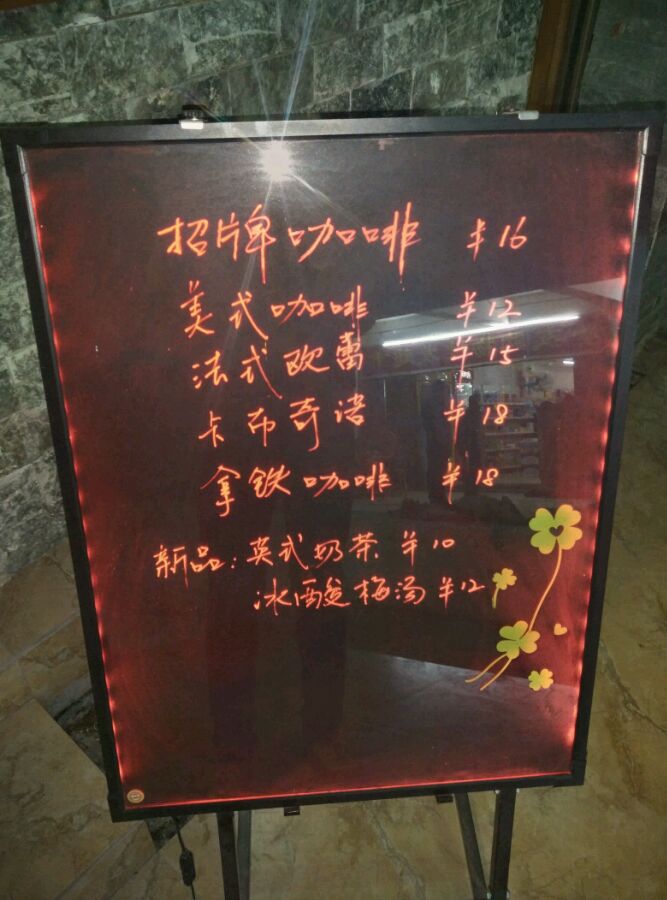 招牌咖啡 ¥16
美式咖啡 ¥12
法式欧蕾 ¥15
卡布奇诺 ¥18
拿铁咖啡 ¥18
新品：英式奶茶 ¥10
冰酸梅汤 ¥12